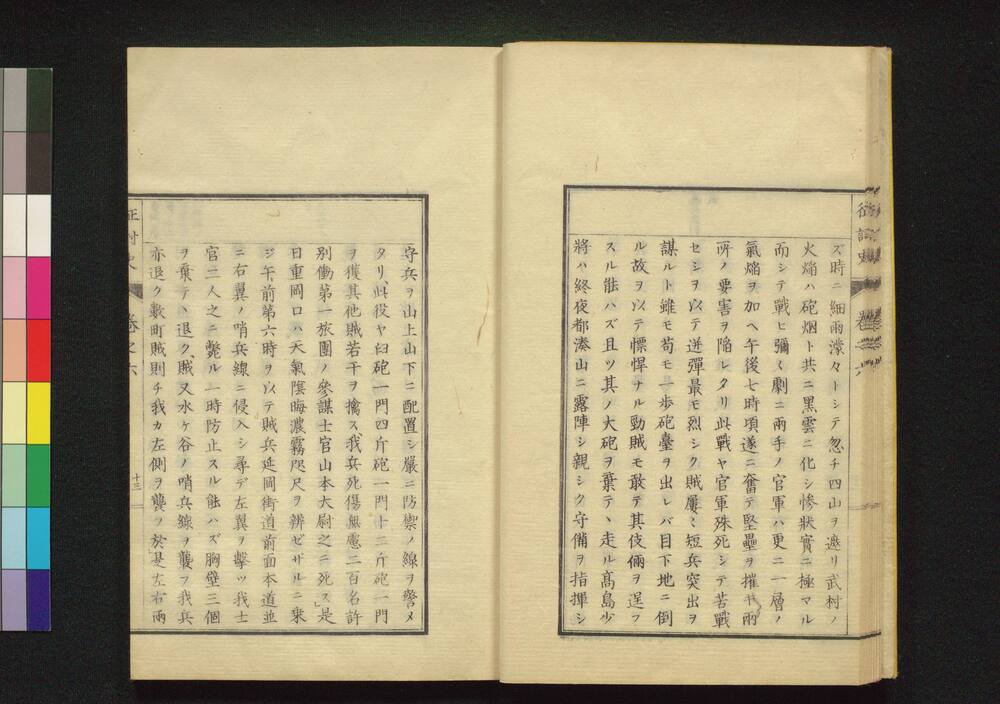 ズ時ニ細雨濛々トシテ忽チ四山ヲ遮リ武村ノ
火焔ハ砲烟ト共ニ黒雲ニ化シ慘狀實ニ極マル
而シテ戰ヒ彌〱劇ニ兩手ノ官軍ハ更ニ一層ノ
氣焔ヲ加ヘ午後七時頃遂ニ奮テ堅壘ヲ摧キ兩
所ノ要害ヲ陷レタリ此戰ヤ官軍殊死シテ苦戰
セシヲ以テ迸彈最モ烈シク賊屢〻短兵突出ヲ
謀ルト雖モ苟モ一歩砲臺ヲ出レバ目下地ニ倒
ル故ヲ以テ慓悍ナル勁賊モ敢テ其伎倆ヲ逞フ
スル能ハズ且ツ其ノ大砲ヲ棄テヽ走ル髙島少
將ハ終夜都湊山ニ露陣シ親シク守備ヲ指揮シ
守兵ヲ山上山下ニ配置シ嚴ニ防禦ノ線ヲ警メ
タリ此役ヤ臼砲一門四斤砲一門十二斤砲一門
ヲ獲其他賊若干ヲ擒ス我兵死傷無慮二百名許
別働第一旅團ノ參謀士官山本大尉之ニ死ス」是
日重岡口ハ天氣陰晦濃霧咫尺ヲ辨ゼザルニ乗
ジ午前第六時ヲ以テ賊兵延岡街道前面本道並
ニ右翼ノ哨兵線ニ侵入シ尋デ左翼ヲ擊ツ我士
官二人之ニ斃ル一時防止スル能ハズ胸壁三個
ヲ棄テヽ退ク賊又水ヶ谷ノ哨兵線ヲ襲フ我兵
亦退ク數町賊則チ我カ左側ヲ襲フ於是左右兩
征討史
卷之六
十三